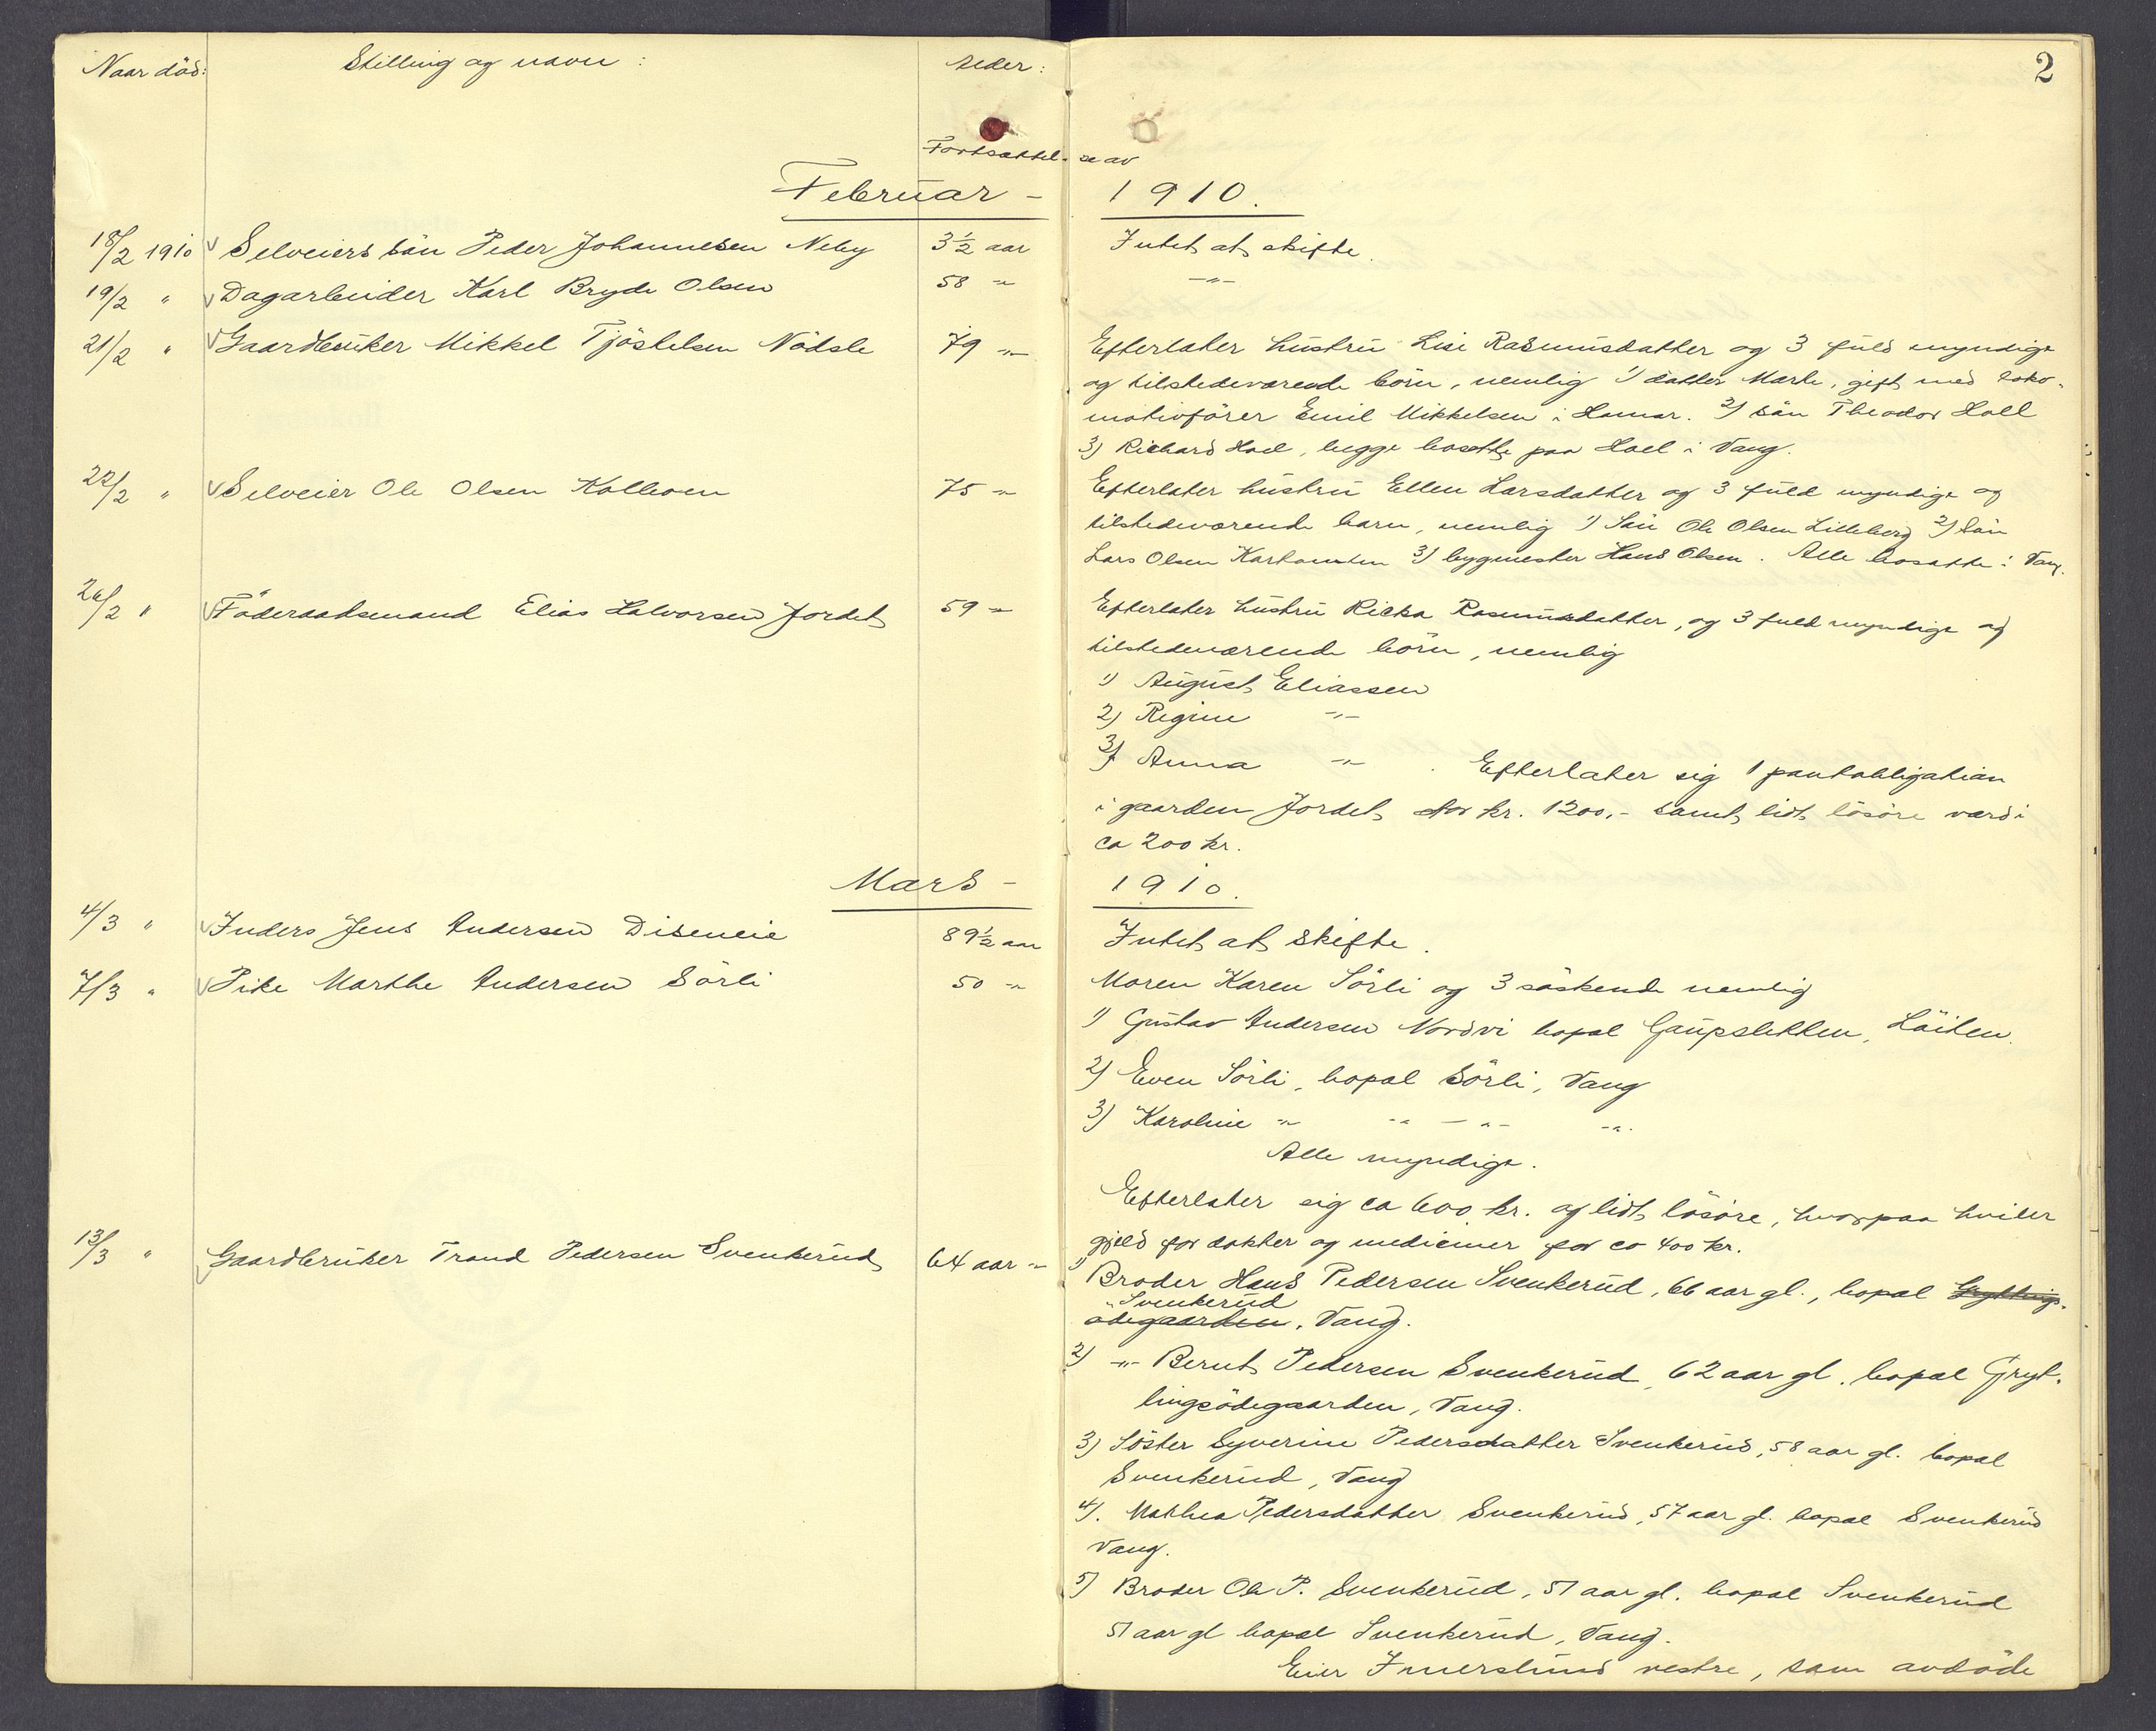 2
Naar död: Stilling og navn: Alder:
Fortsættel- se av
Februar - 1910.
18/2 1910 Selveiers sön Peder Johannesen Neby 3½ aar Intet at skifte.
19/2 " Dagarbeider Karl Bryde Olsen 58 " -"-
21/2 " Gaardbruker Mikkel Tjöstelsen Nödsle 79 " Efterlater hustru Lise Rasmusdatter og 3 fuld myndige
og tilstedeværende börn, nemlig 1) datter Marte, gift med loko-
motivförer Emil Mikkelsen i Hamar. 2) sön Theodor Hoel
3) Richard Hoel, begge bosatte paa Hoel i Vang.
22/2 " Selveier Ole Olsen Kolloen 75 " Efterlater hustru Ellen Larsdatter og 3 fuld myndige og
tilstedeværende barn, nemlig 1) Sön Ole Olsen Lilleberg 2) Sön
Lars Olsen 3) bygmester Hans Olsen. Alle bosatte i Vang.
26/2 " Föderaadsmand Elias Halvorsen Jordet 59 " Efterlater hustru Ricka Rasmusdatter, og 3 fuld myndige og
tilstedeværende börn, nemlig
1) August Eliassen
2) Regine -"-
3) Anna -"- . Efterlater sig 1 pantobligation
i gaarden Jordet stor kr. 1200,- samt lidt lösöre værdi
ca 200 kr.
Mars - 1910.
4/3 " Inders Jens Andersen Diseneie 89½ aar Intet at skifte.
7/3 " Pike Marthe Andersen Sörli 50 " Moren Karen Sörli og 3 söskende nemlig
1) Gustav Andersen Nordvi bopæl Gaupsletten, Löiten.
2) Even Sörli, bopæl Sörli, Vang
3) Karoline " -"- -"- -"-
Alle myndige.
Efterlater sig ca 600 kr. og lidt lösöre, hvorpaa hviler
gjeld for dokter og mediciner for ca 400 kr.
13/3 " Gaardbruker Trond Pedersen Svenkerud 64 aar " 1) Broder Hans Pedersen Svenkerud, 66 aar gl., bopæl Gryttings-
Svenkerud
ödegaarden, Vang.
2) -"- Bernt Pedersen Svenkerud, 62 aar gl. bopæl Gryt-
lingsödegaarden, Vang.
3) Söster Syverine Pedersdatter Svenkerud, 58 aar gl. bopæl
Svenkerud, Vang
4). Mathea Pedersdatter Svenkerud, 57 aar gl. bopæl Svenkerud
Vang.
5) Broder Ole P. Svenkerud, 51 aar gl. bopæl Svenkerud
51 aar gl bopæl Svenkerud, Vang.
Eier Imerslund vestre, som avdöde